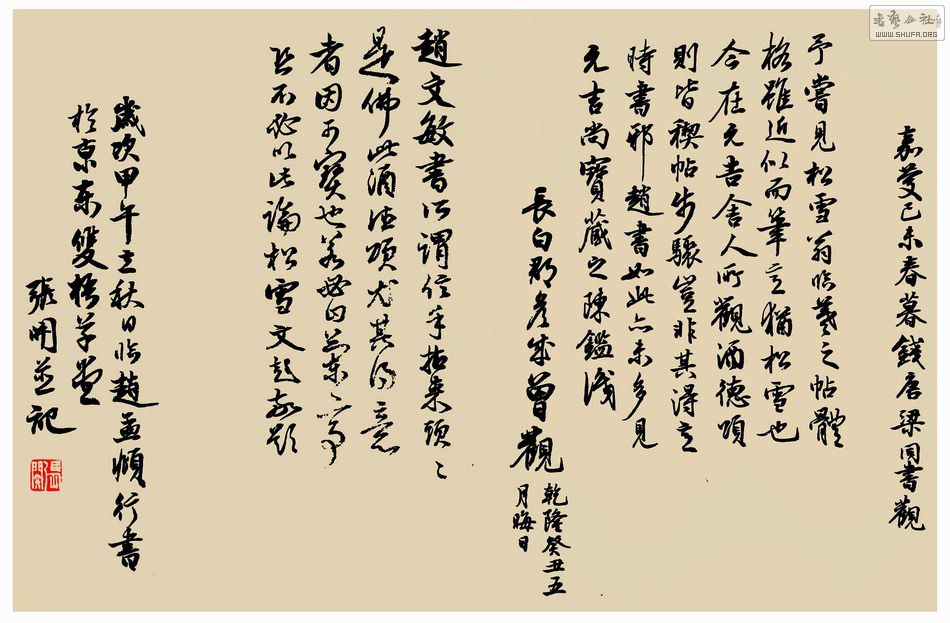 嘉慶己未春暮錢唐梁同書觀
予嘗見松雪翁臨羲之帖體
格雖近似而筆意猶松雪也
今在元吉舍人所觀酒德頌
則皆禊帖步驟豈非其得意
時書邪趙書如此亦未多見
元吉尚寶藏之陳鑑識
長白那彥成曾觀
乾隆癸丑五
月晦日
趙文敏書所謂信手拈來頭〻
是佛此酒德頌尤其得意
者因可寶也若
且不必以此論松雪文起敬題
歲次甲午立秋日臨趙孟頫行書
於京東雙梧草堂
張開並記
書藝公社
WWW.SHUFA.ORG